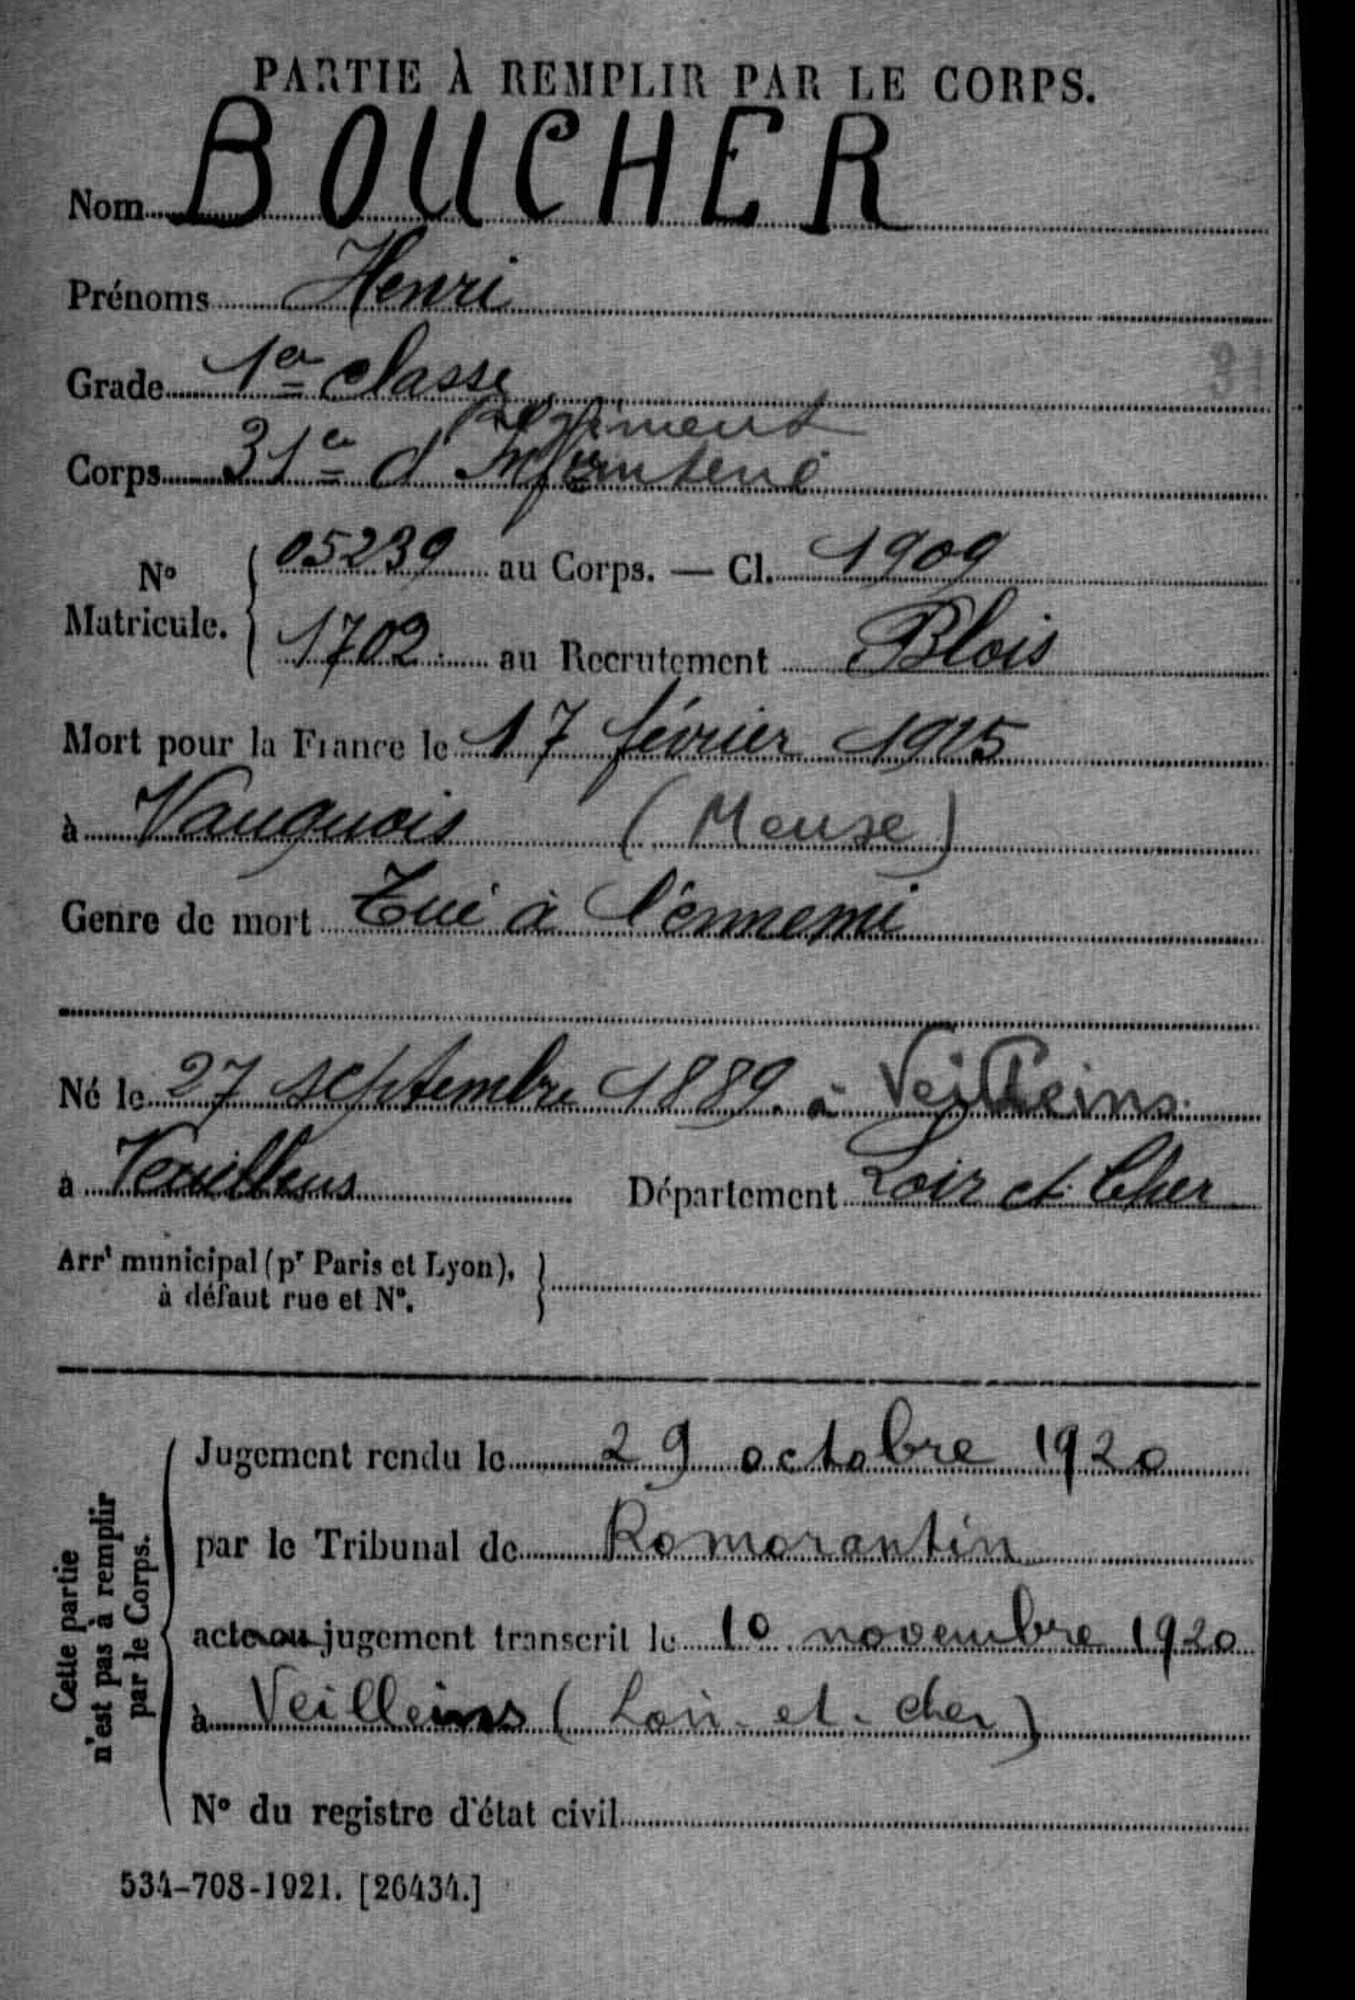 PARTIE À REMPLIR PAR LE CORPS.
Nom BOUCHER
Prénoms Henri
Grade 1er classe
Régiment
Corps 31e d'Infanterie
No Matricule. 05239 au Corps. — Cl. 1909
1702 au Recrutement Blois
Mort pour la France le 17 février 1915
à Vauquois (Meuse)
Genre de mort Tué à l'ennemi
Né le 27 septembre 1889 à Veilleins.
à Département Loir et Cher
Arrt municipal (pr Paris et Lyon),
à défaut rue et No.
Cette partie
n'est pas à remplir
par le Corps.
Jugement rendu le 29 octobre 1920
par le Tribunal de Romorantin
acte ou jugement transcrit le 10 novembre 1920
à Veilleins (Loir-et-cher)
No du registre d'état civil
534-708-1921. [26434.]